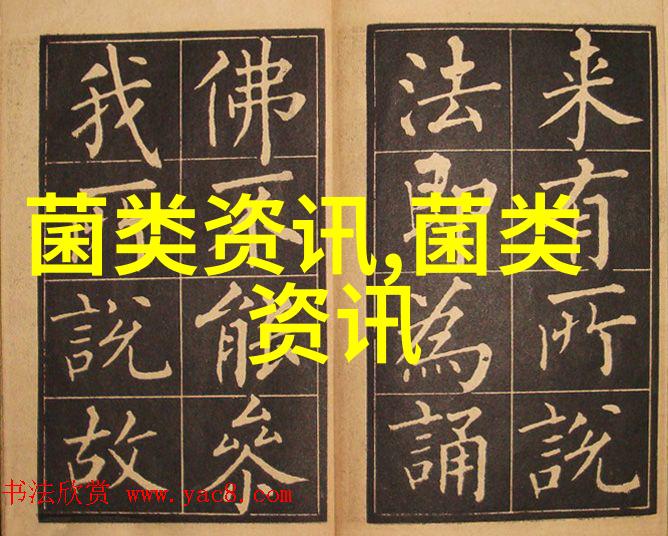 来有所說
法即為誦
佛不能叅
我所說故
菌类资讯,菌类
资讯
书法欣赏 www.yac8.com